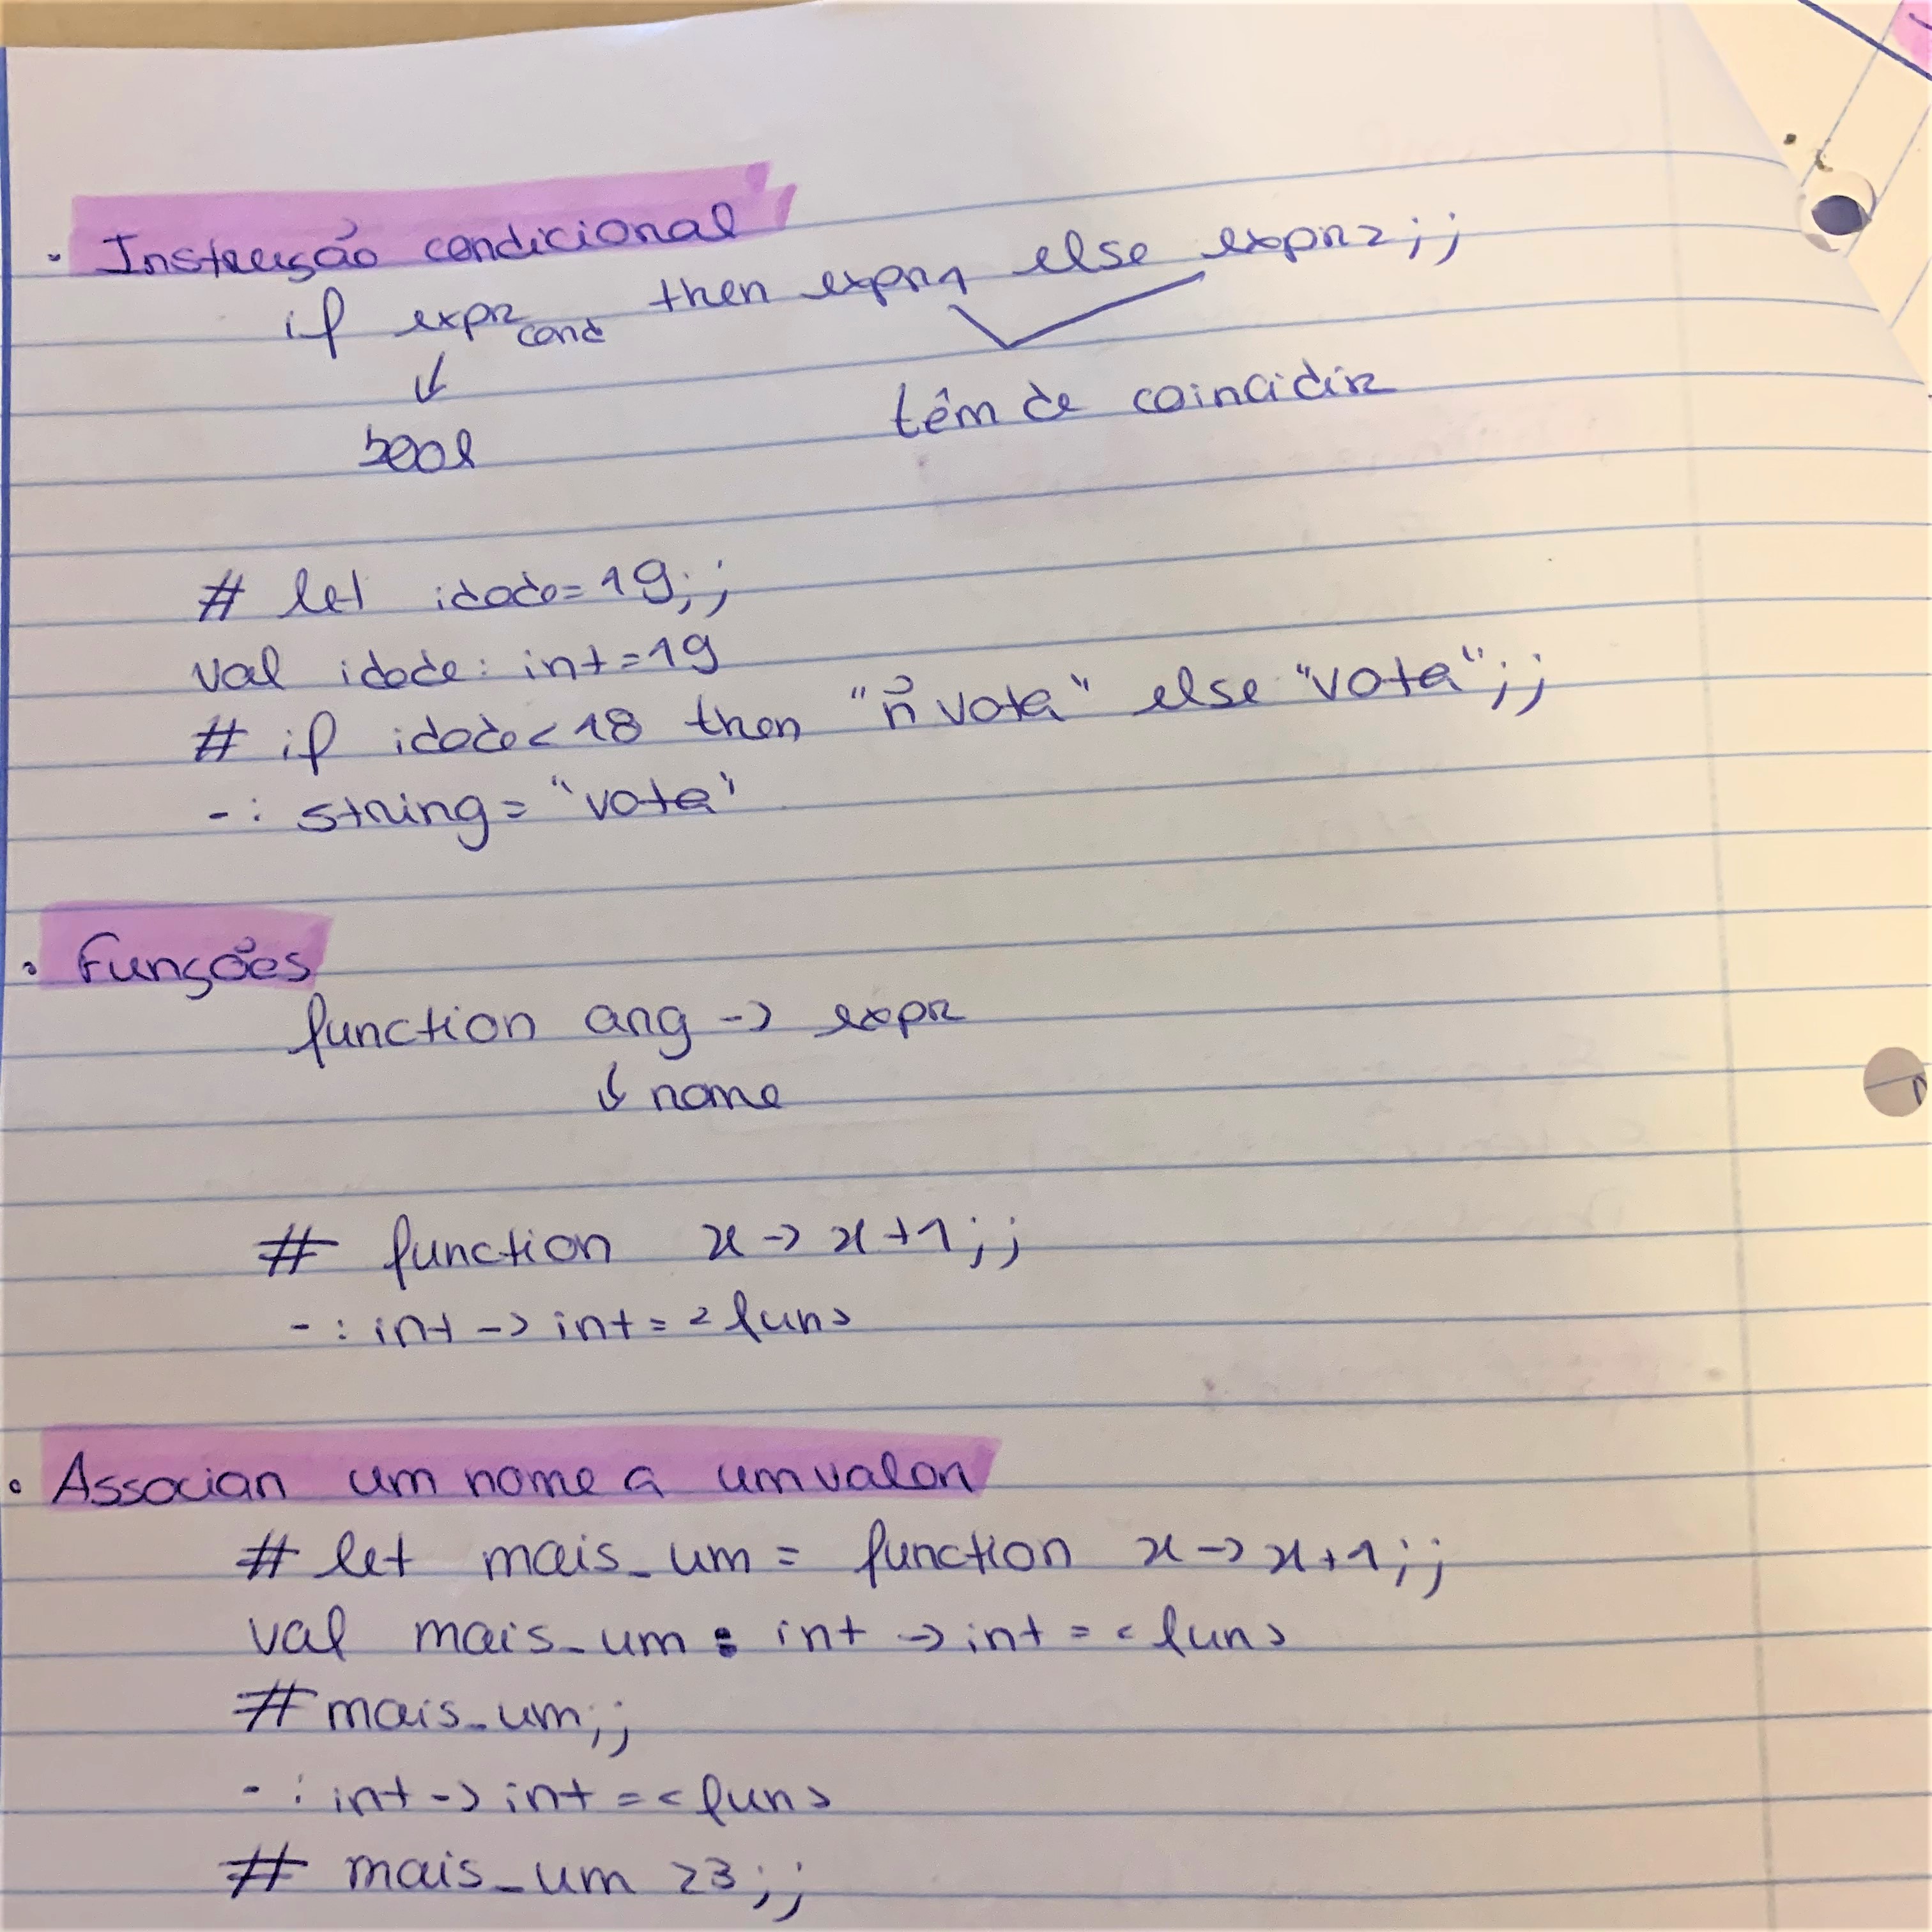 • Instrução condicional
if expr cond then expr1 else expr2;;
↓
bool
têm de coincidir
# let idade=19;;
val idade: int=19
# if idade<18 then "ñ vota" else "vota";;
-: string= "vota"
• Funções
function arg -> expr
↓ nome
# function x -> x+1;;
-: int -> int = <fun>
• Associar um nome a um valor
# let mais_um = function x -> x+1;;
val mais_um : int -> int = <fun>
# mais_um;;
-: int -> int = <fun>
# mais_um 23;;